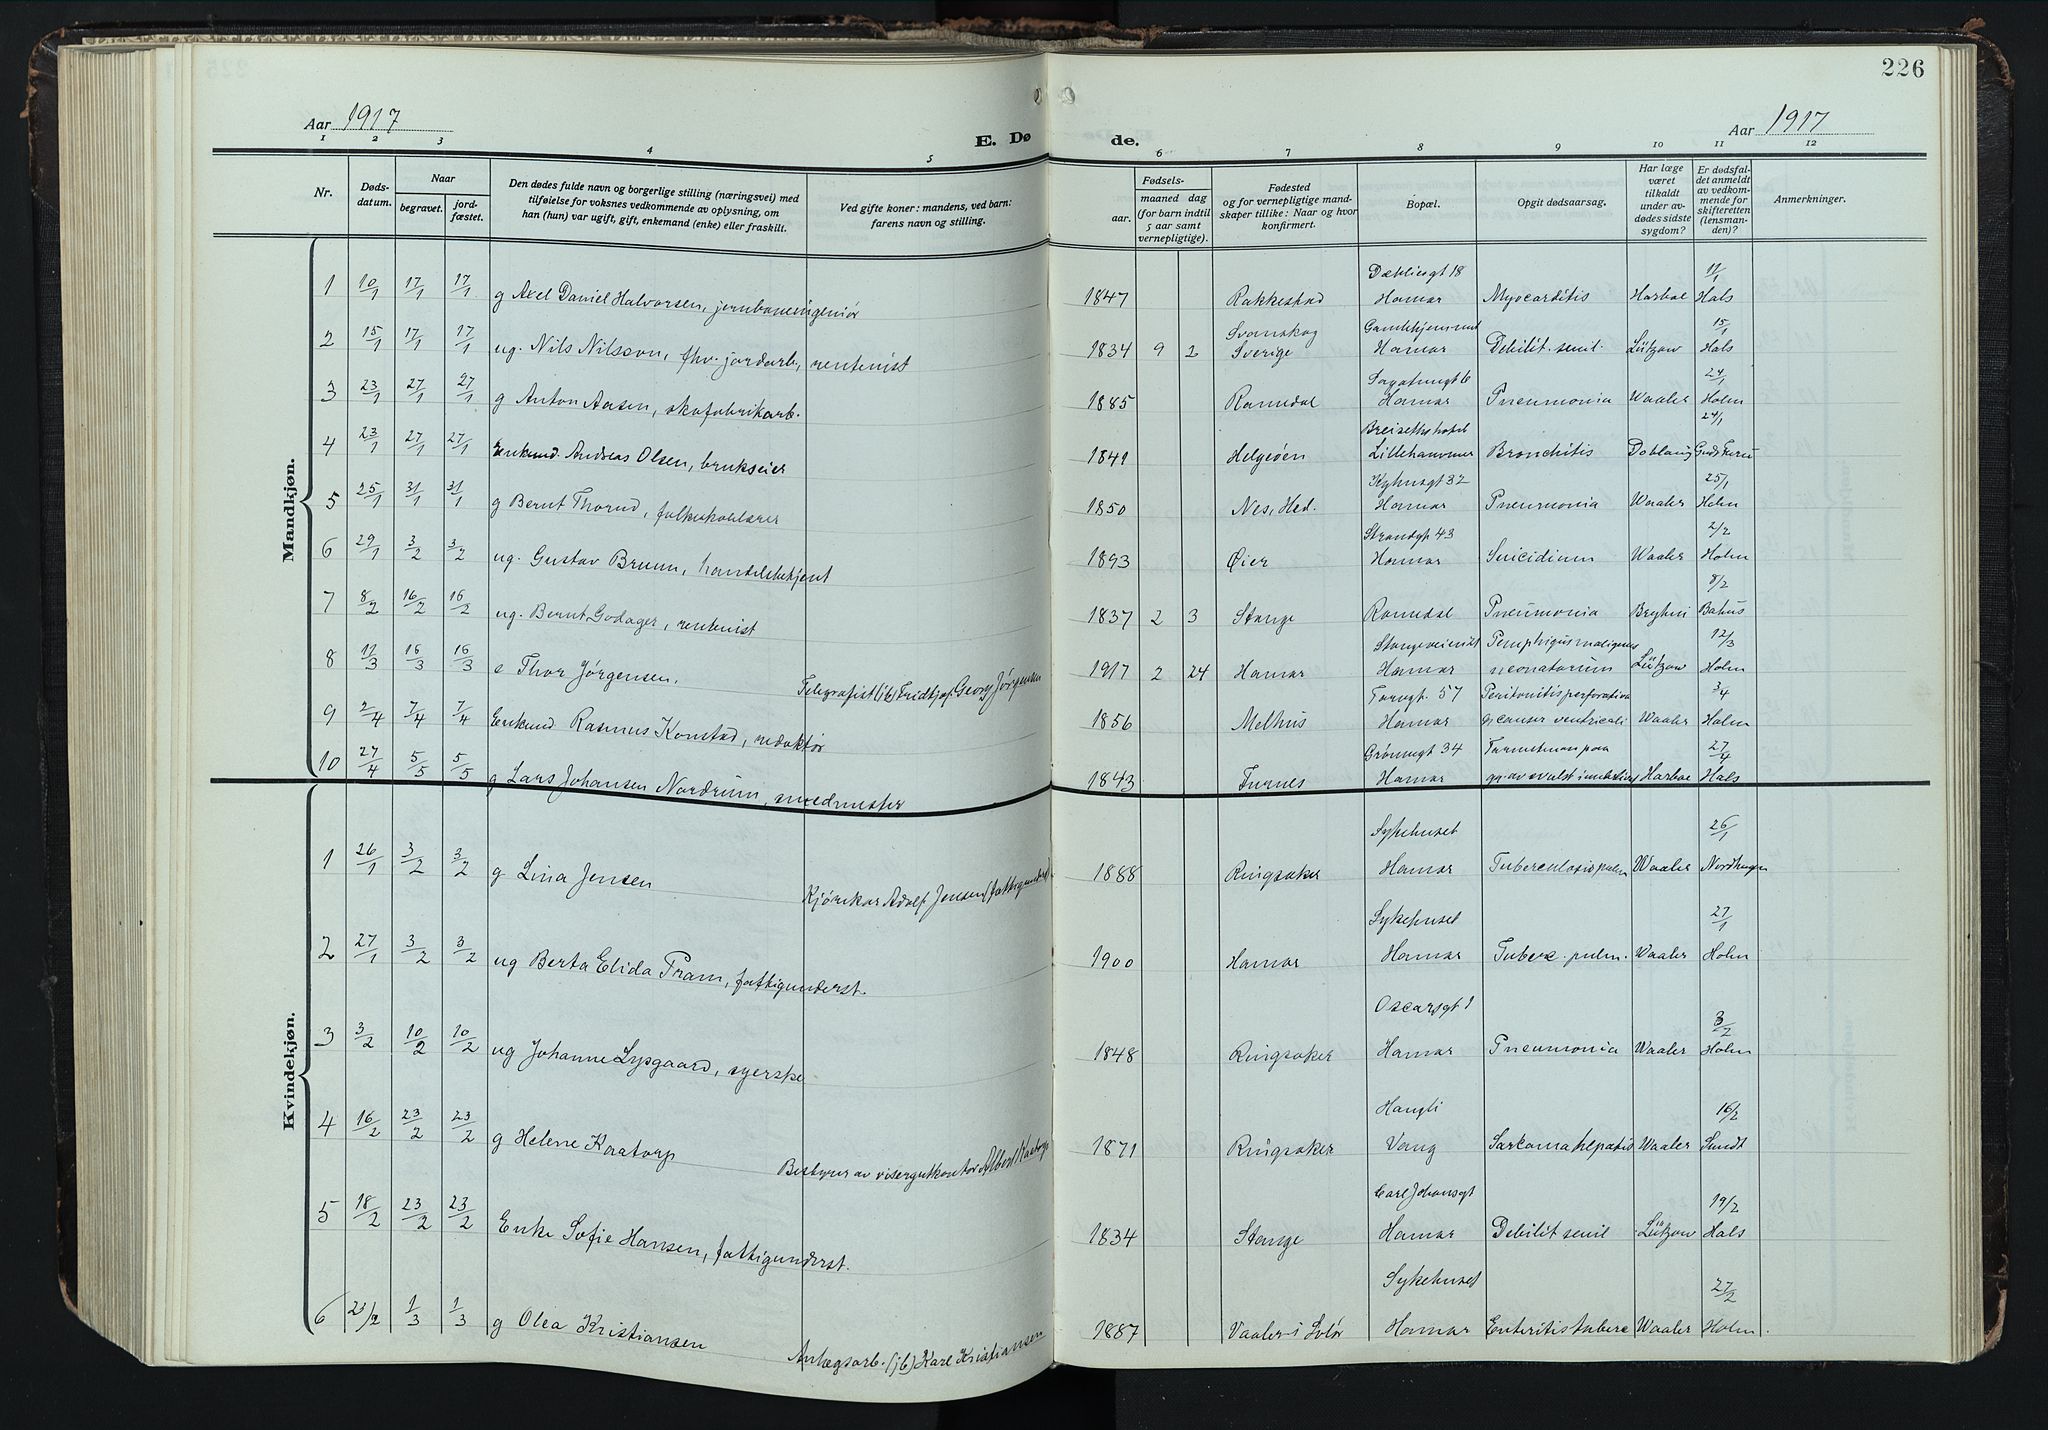 226
Aar 1917
E. Døde.
Aar 1917
1 2 3 4 5 6 7 8 9 10 11 12
Nr.
Døds-
datum.
Naar
begravet.
jord-
fæstet.
Den dødes fulde navn og borgerlige stilling (næringsvei) med
tilføielse for voksnes vedkommende av oplysning, om
han (hun) var ugift, gift, enkemand (enke) eller fraskilt.
Ved gifte koner: mandens, ved barn:
farens navn og stilling.
Fødsels-
aar.
maaned dag
(for barn indtil
5 aar samt
vernepligtige).
Fødested
og for vernepligtige mand-
skaper tillike: Naar og hvor
konfirmert.
Bopæl.
Opgit dødsaarsag.
Har læge
været
tilkaldt
under av-
dødes sidste
sygdom?
Er dødsfal-
det anmeldt
av vedkom-
mende for
skifteretten
(lensman-
den)?
Anmerkninger.
Mandkjøn.
Dæhliesgt 18 11/1
1 10/1 17/1 17/1 g Axel Daniel Halvorsen, jernbaneingeniør 1847 Rakkestad Hamar Myocarditis Harboe Hals
Svanskog Gamlehjemmet 15/1
2 15/1 17/1 17/1 ug. Nils Nilsson, fhv. jordarb., rentenist 1834 9 2 Sverige Hamar Debilit. senil. Lützow Hals
24/1
3 23/1 27/1 27/1 g Anton Aasen, skofabrikarb. 1885 Romedal Hamar Pneumonia Waaler Holm
Breisethshotel 24/1
4 23/1 27/1 27/1 Enkemd. Andreas Olsen, brukseier 1849 Helgøen Lillehammer Bronchitis Doblaug
25/1
5 25/1 31/1 31/1 g Bernt Thorud, folkeskolelærer 1850 Nes, Hed. Hamar Pneumonia Waaler Holm
Strandgt. 43 2/2
6 29/1 3/2 3/2 ug. Gustav Bruun, handelsbetjent 1893 Øier Hamar Suicidium Waaler Holm
8/2
7 8/2 16/2 16/2 ug. Bernt Godager, rentenist 1837 2 3 Stange Romedal Pneumonia Bryhni Bakus
Stangeveien Pemphigus malignus 12/3
8 11/3 16/3 16/3 e Thor Jørgensen, Telegrafist (jb) Fridtjof Georg Jørgensen 1917 2 24 Hamar Hamar neonatorum Lützow Holm
Torvgt. 57 Peritonitis perforativa 3/4
9 2/4 7/4 7/4 Enkemd Rasmus Konstad, redaktør 1856 Melhus Hamar cancer ventriculi Waaler Holm
Grønnegt 34 27/4
10 27/4 5/5 5/5 g Lars Johansen Nordrum, smedmester 1843 Furnes Hamar Harboe Hals
Kvindekjøn.
Sykehuset 26/1
1 26/1 3/2 3/2 g Lina Jensen Kjørekar Adolf Jensen (fattigunderst.) 1888 Ringsaker Hamar Tuberculosis pulm Waaler Nordhagen
Sykehuset 27/1
2 27/1 3/2 3/2 ug Berta Elida Fram, fattigunderst. 1900 Hamar Hamar Tuberc. pulm. Waaler Holm
Oscarsgt 1 3/2
3 3/2 10/2 10/2 ug Johanne Lysgaard, syerske 1848 Ringsaker Hamar Pneumonia Waaler Holm
Hangli 16/2
4 16/2 23/2 23/2 g Helene Kaatorp Bestyrer av visergutkontor Albert Kaatorp 1871 Ringsaker Vang Sarkoma hepatis Waaler Sundt
Carl Johansgt 19/2
5 18/2 23/2 23/2 Enke Sofie Hansen, fattigunderst. 1834 Stange Hamar Debilit senil Lützow Hals
Sykehuset 27/2
6 1/3 1/3 g Olea Kristiansen Anlægsarb. (jb) Karl Kristiansen 1887 Vaaler i Solør Hamar Enteritis tuberc Waaler Holm.